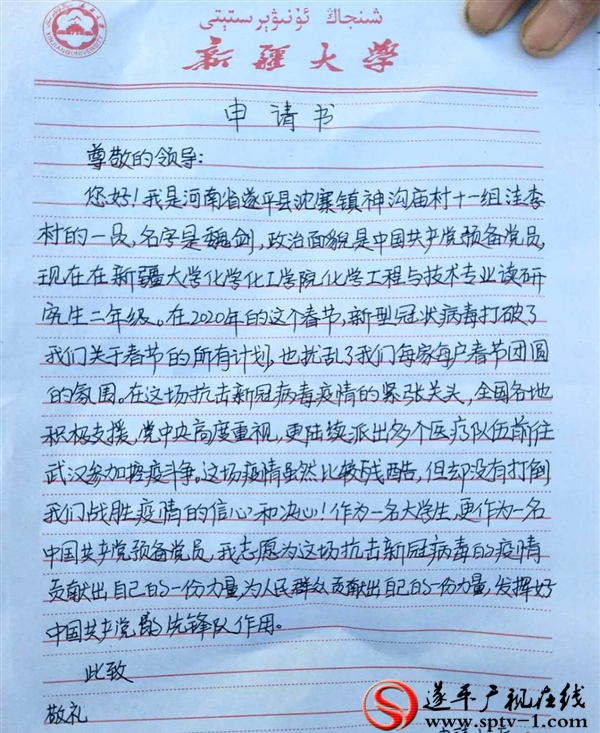 شىنجاڭ ئۇنىۋېرسىتېتى
XINJIANG UNIVERSITY
新疆大学
申请书
尊敬的领导:
您好!我是河南省遂平县沈寨镇神沟庙村十一组洼李
村的一员,名字是魏剑,政治面貌是中国共产党预备党员,
现在在新疆大学化学化工学院化学工程与技术专业读研
究生二年级。在2020年的这个春节,新型冠状病毒打破了
我们关于春节的所有计划,也扰乱了我们每家每户春节团圆
的氛围。在这场抗击新冠病毒疫情的紧张关头,全国各地
积极支援,党中央高度重视,更陆续派出多个医疗队伍前往
武汉参加控疫斗争。这场疫情虽然比较残酷,但却没有打倒
我们战胜疫情的信心和决心!作为一名大学生,更作为一名
中国共产党预备党员,我志愿为这场抗击新冠病毒的疫情
贡献出自己的一份力量,为人民群众贡献出自己的一份力量,发挥好
中国共产党的先锋队作用。
此致
敬礼
遂平广视在线
www.sptv-1.com